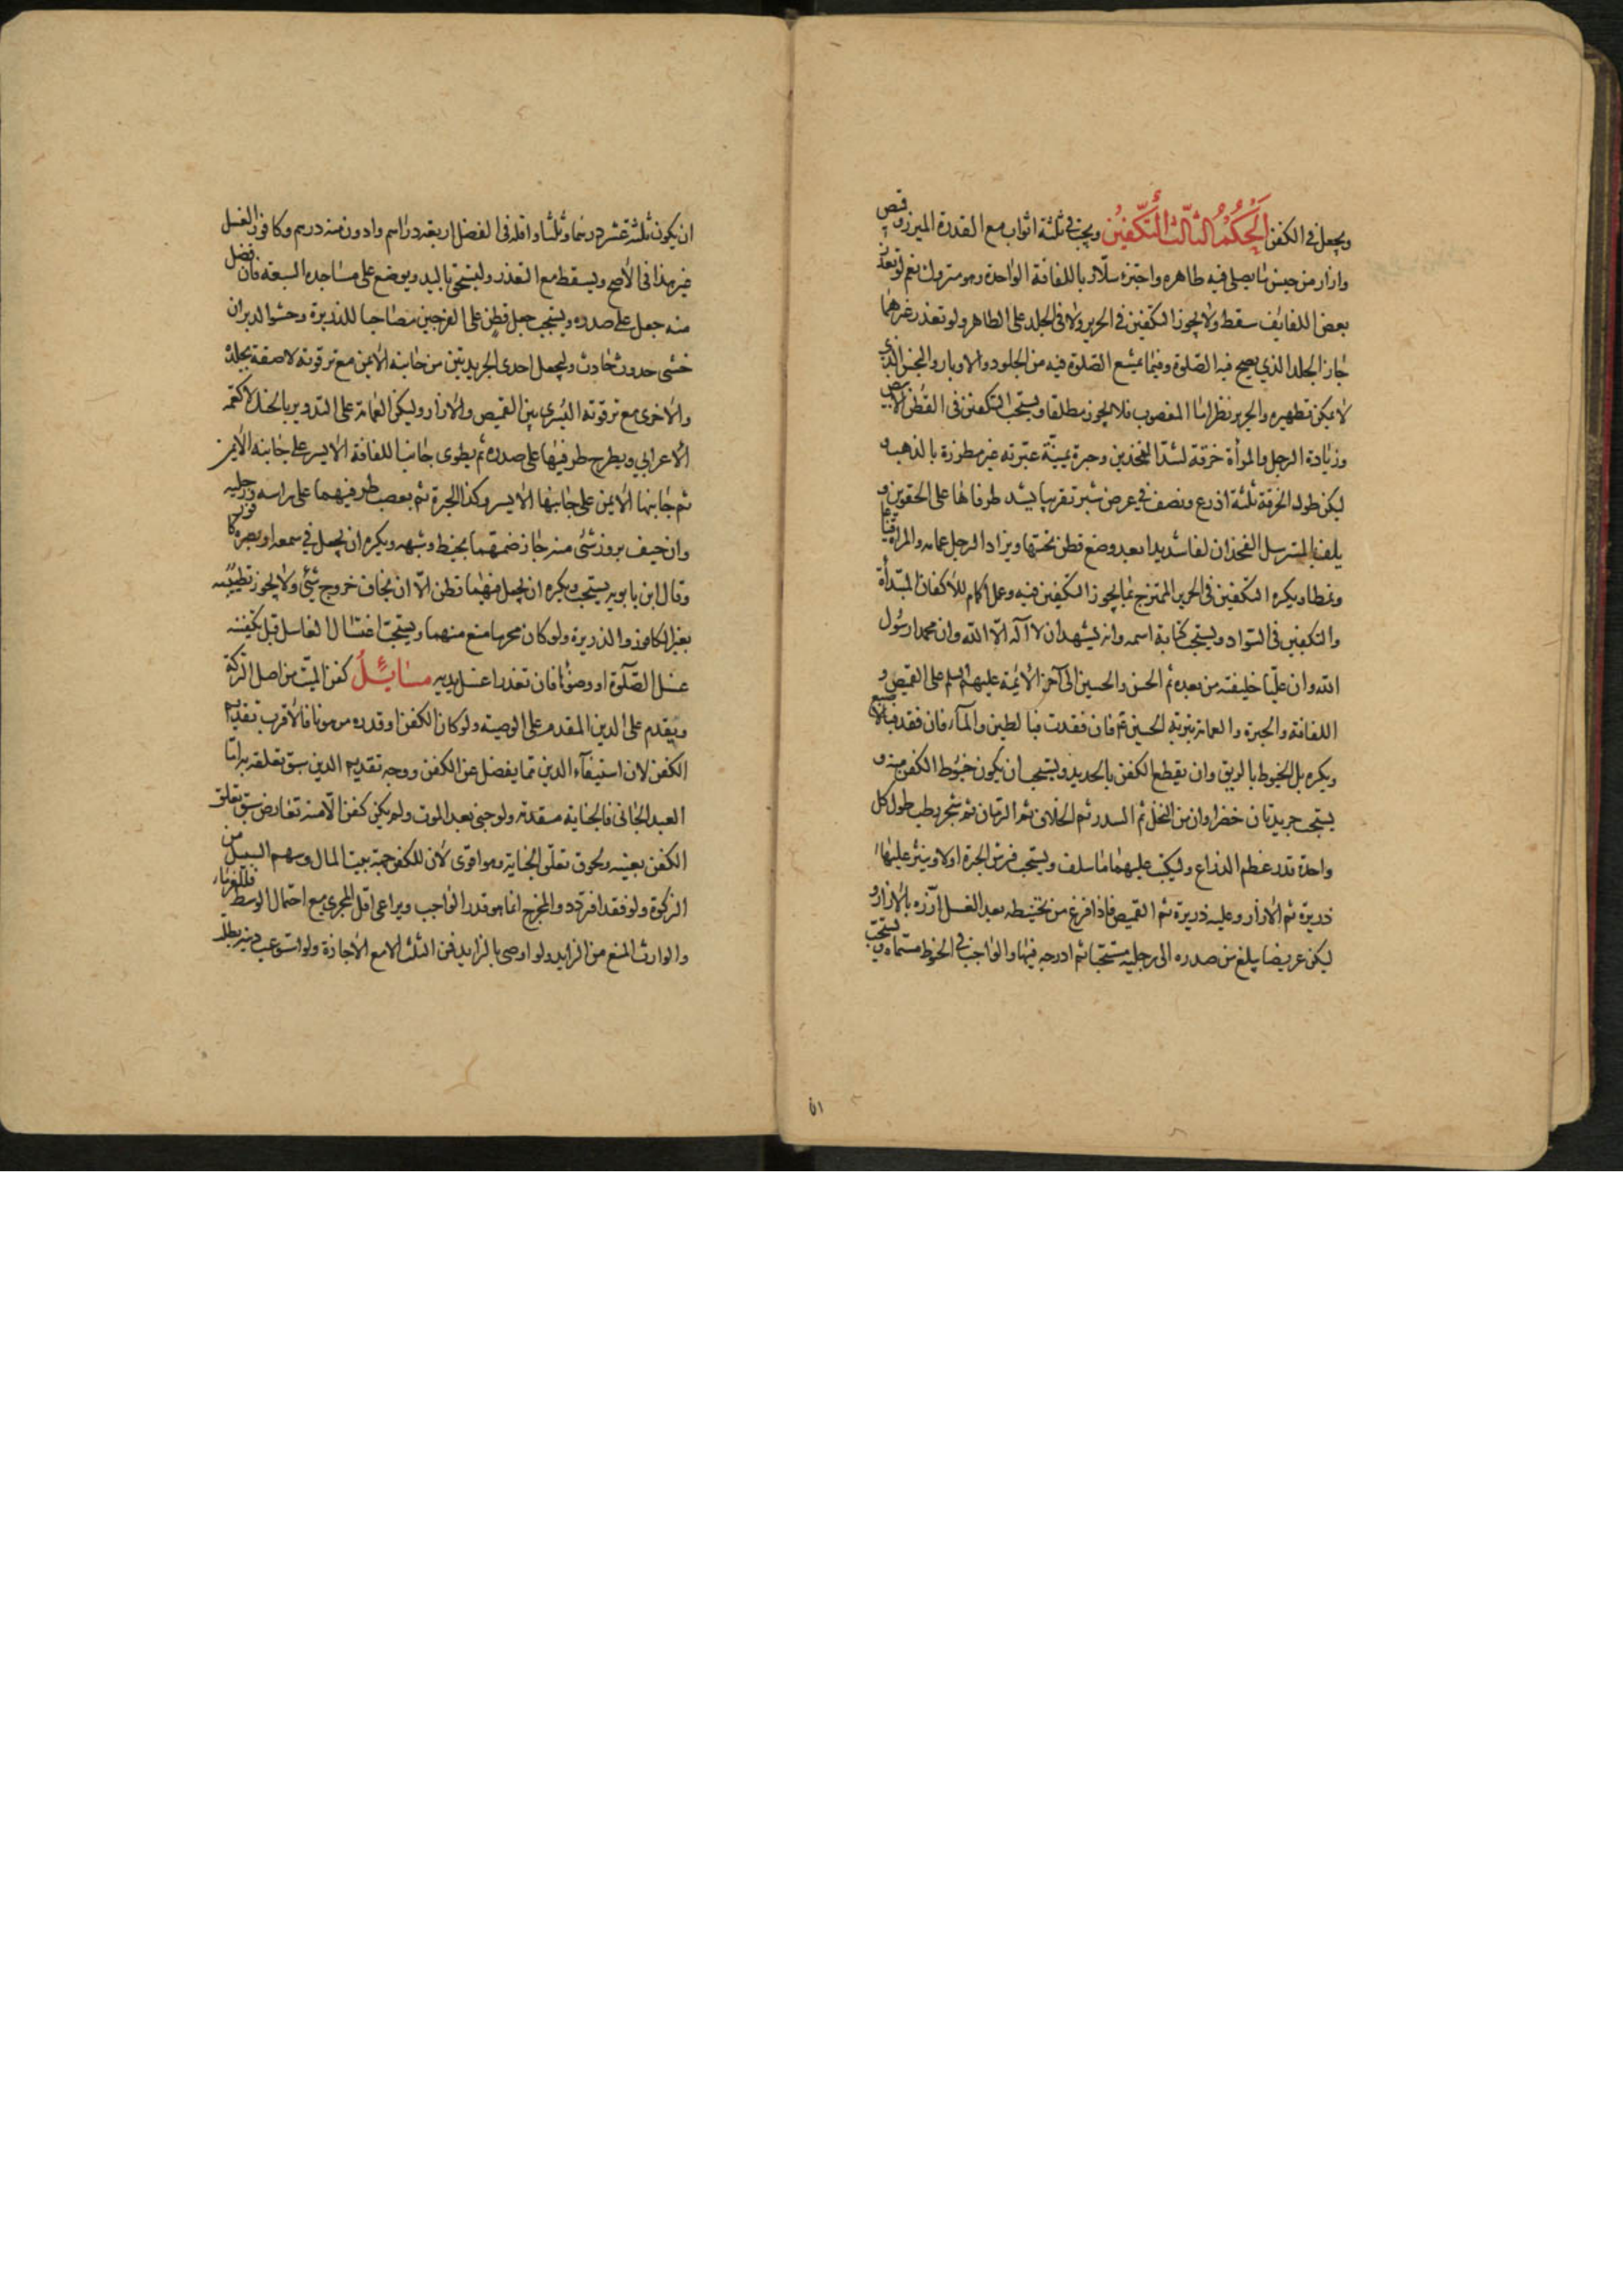 ويجعل في الكفن الحكم الثالث التكفين ويجب في ثلثة اثواب مع القدرة الميزر وقميص
وازار من جنس ما يصلى فيه ظاهره واجتزء سلار باللفافة الواحدة وهو متروك نعم لو تعذر
بعض اللفايف سقط ولا يجوز التكفين في الحرير ولا في الجلد على الظاهر ولو تعذر غيرهما
جاز الجلد الذي يصح فيه الصلوة وفيما يمتنع الصلوة فيه من الجلود والاوبار والنجس الذي
لا يمكن تطهيره والحرير نظر اما المغصوب فلا يجوز مطلقا ويستحب التكفين في القطن الابيض
وزيادة الرجل والمرأة خرقة لشد الفخذين وحبرة يمنية عبرية غير مطرزة بالذهب و
ليكن طول الخرقة ثلثة اذرع ونصف في عرض شبر تقريبا يشد طرفاها على الحقوين و
يلف بالمسترسل الفخذان لفا شديدا بعد وضع قطن تحتها ويزاد الرجل عمامه والمراة قناعا
ونمطا ويكره التكفين في الحرير الممتزج بما يجوز التكفين فيه وعمل اكمام للاكفان المبتدأة
والتكفين في السواد ويستحب كتابة اسمه وانه يشهد ان لا اله الا الله وان محمدا رسول
الله وان عليا خليفته من بعده ثم الحسن والحسين الى آخر الائمة عليهم السلم على القميص و
اللفافة والحبرة والعمامة بتربة الحسين ع فان فقدت فبالطين والماء فان فقد فبالاصبع
ويكره بل الخيوط بالريق وان يقطع الكفن بالحديد ويستحب ان يكون خيوط الكفن منه و
يستحب جريدتان خضراوان من النخل ثم السدر ثم الخلاف ثم الرمان ثم شجر رطب طول كل
واحدة قدر عظم الذراع وليكتب عليهما ما سلف ويستحب فرش الحبرة اولا وينثر عليها
ذريرة ثم الازار وعليه ذريرة ثم القميص فاذا فرغ من تحنيطه بعد الغسل آزره بالازار و
ليكن عريضا يبلغ من صدره الى رجليه مستحبا ثم ادرجه فيها والواجب في الحنوط مسماه ويستحب
٥١
ان يكون ثلثة عشر درهما وثلثا واقله في الفضل اربعة دراهم وادون منه درهم وكافور الغسل
غير هذا في الاصح ويسقط مع التعذر وليسحق باليد ويوضع على مساجده السبعة فان فضل
منه جعل على صدره ويستحب جعل قطن على الفرجين مصاحبا للذريرة وحشو الدبر ان
خشي حدوث حادث وليجعل احدى الجريدتين من جانبه الايمن مع ترقوته لاصقة بجلده
والاخرى مع ترقوته اليسرى بين القميص والازار وليكن العمامة على التدوير بالحنك لا كعمة
الاعرابي ويطرح طرفيها على صدره ثم يطوى جانب اللفافة الايسر على جانبه الايمن
ثم جانبها الايمن على جانبها الايسر وكذا الحبرة ثم يعصب طرفيهما على راسه ورجليه
وان خيف بروز شئ منه جاز ضمهما بخيط وشبهه ويكره ان يجعل في سمعه او بصره كافور
وقال ابن بابويه يستحب ويكره ان يجعل فيهما قطن الا ان يخاف خروج شئ ولا يجوز تطييبه
بغير الكافور والذريرة ولو كان محرما منع منهما ويستحب اغتسال الغاسل قبل تكفينه
غسل الصلوة او وضوئها فان تعذرا غسل يديه مسائل كفن الميت من اصل التركة
ويقدم على الدين المقدم على الوصية ولو كان الكفن او قدره مرهونا فالاقرب تقديم
الكفن لان استيفاء الدين مما يفضل عن الكفن ووجه تقديم الدين سبق تعلقه به اما
العبد الجاني فالجناية مقدمة ولو جنى بعد الموت ولم يكن كفن الا منه تعارض سبق تعلق
الكفن بعينه ولحوق تعلق الجناية وهو اقوى لان للكفن جهة بيت المال وسهم السبيل من
الزكوة ولو فقد افتردد والمخرج انما هو قدر الواجب ويراعى اقل المجزي مع احتمال الوسط فللغرماء
والوارث المنع من الزايد ولو اوصى بالزايد فمن الثلث الا مع الاجازة ولو استوعب دينه بطل